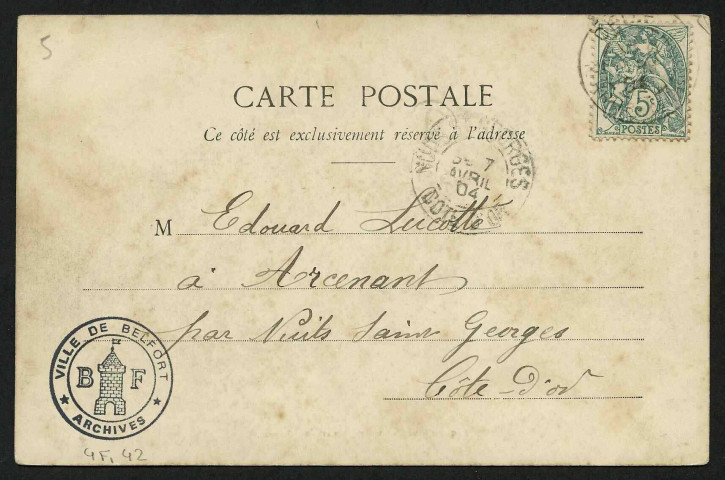 5
CARTE POSTALE
Ce côté est exclusivement réservé à l'adresse
5c
POSTES
7
AVRIL
04
M Edouard Lucotte
à Arcenant
par Nuits Saint Georges
Côte-d'or
VILLE DE BELFORT
B F
ARCHIVES
4Fi 42